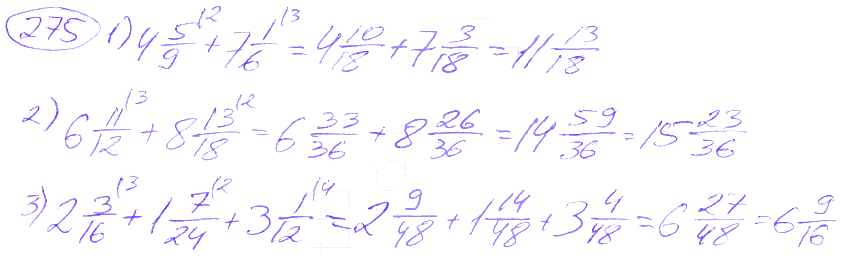 275 1) 4 5/9 |2 + 7 1/6 |3 = 4 10/18 + 7 3/18 = 11 13/18
2) 6 11/12 |3 + 8 13/18 |2 = 6 33/36 + 8 26/36 = 14 59/36 = 15 23/36
3) 2 3/16 |3 + 1 7/24 |2 + 3 1/12 |4 = 2 9/48 + 1 14/48 + 3 4/48 = 6 27/48 = 6 9/16